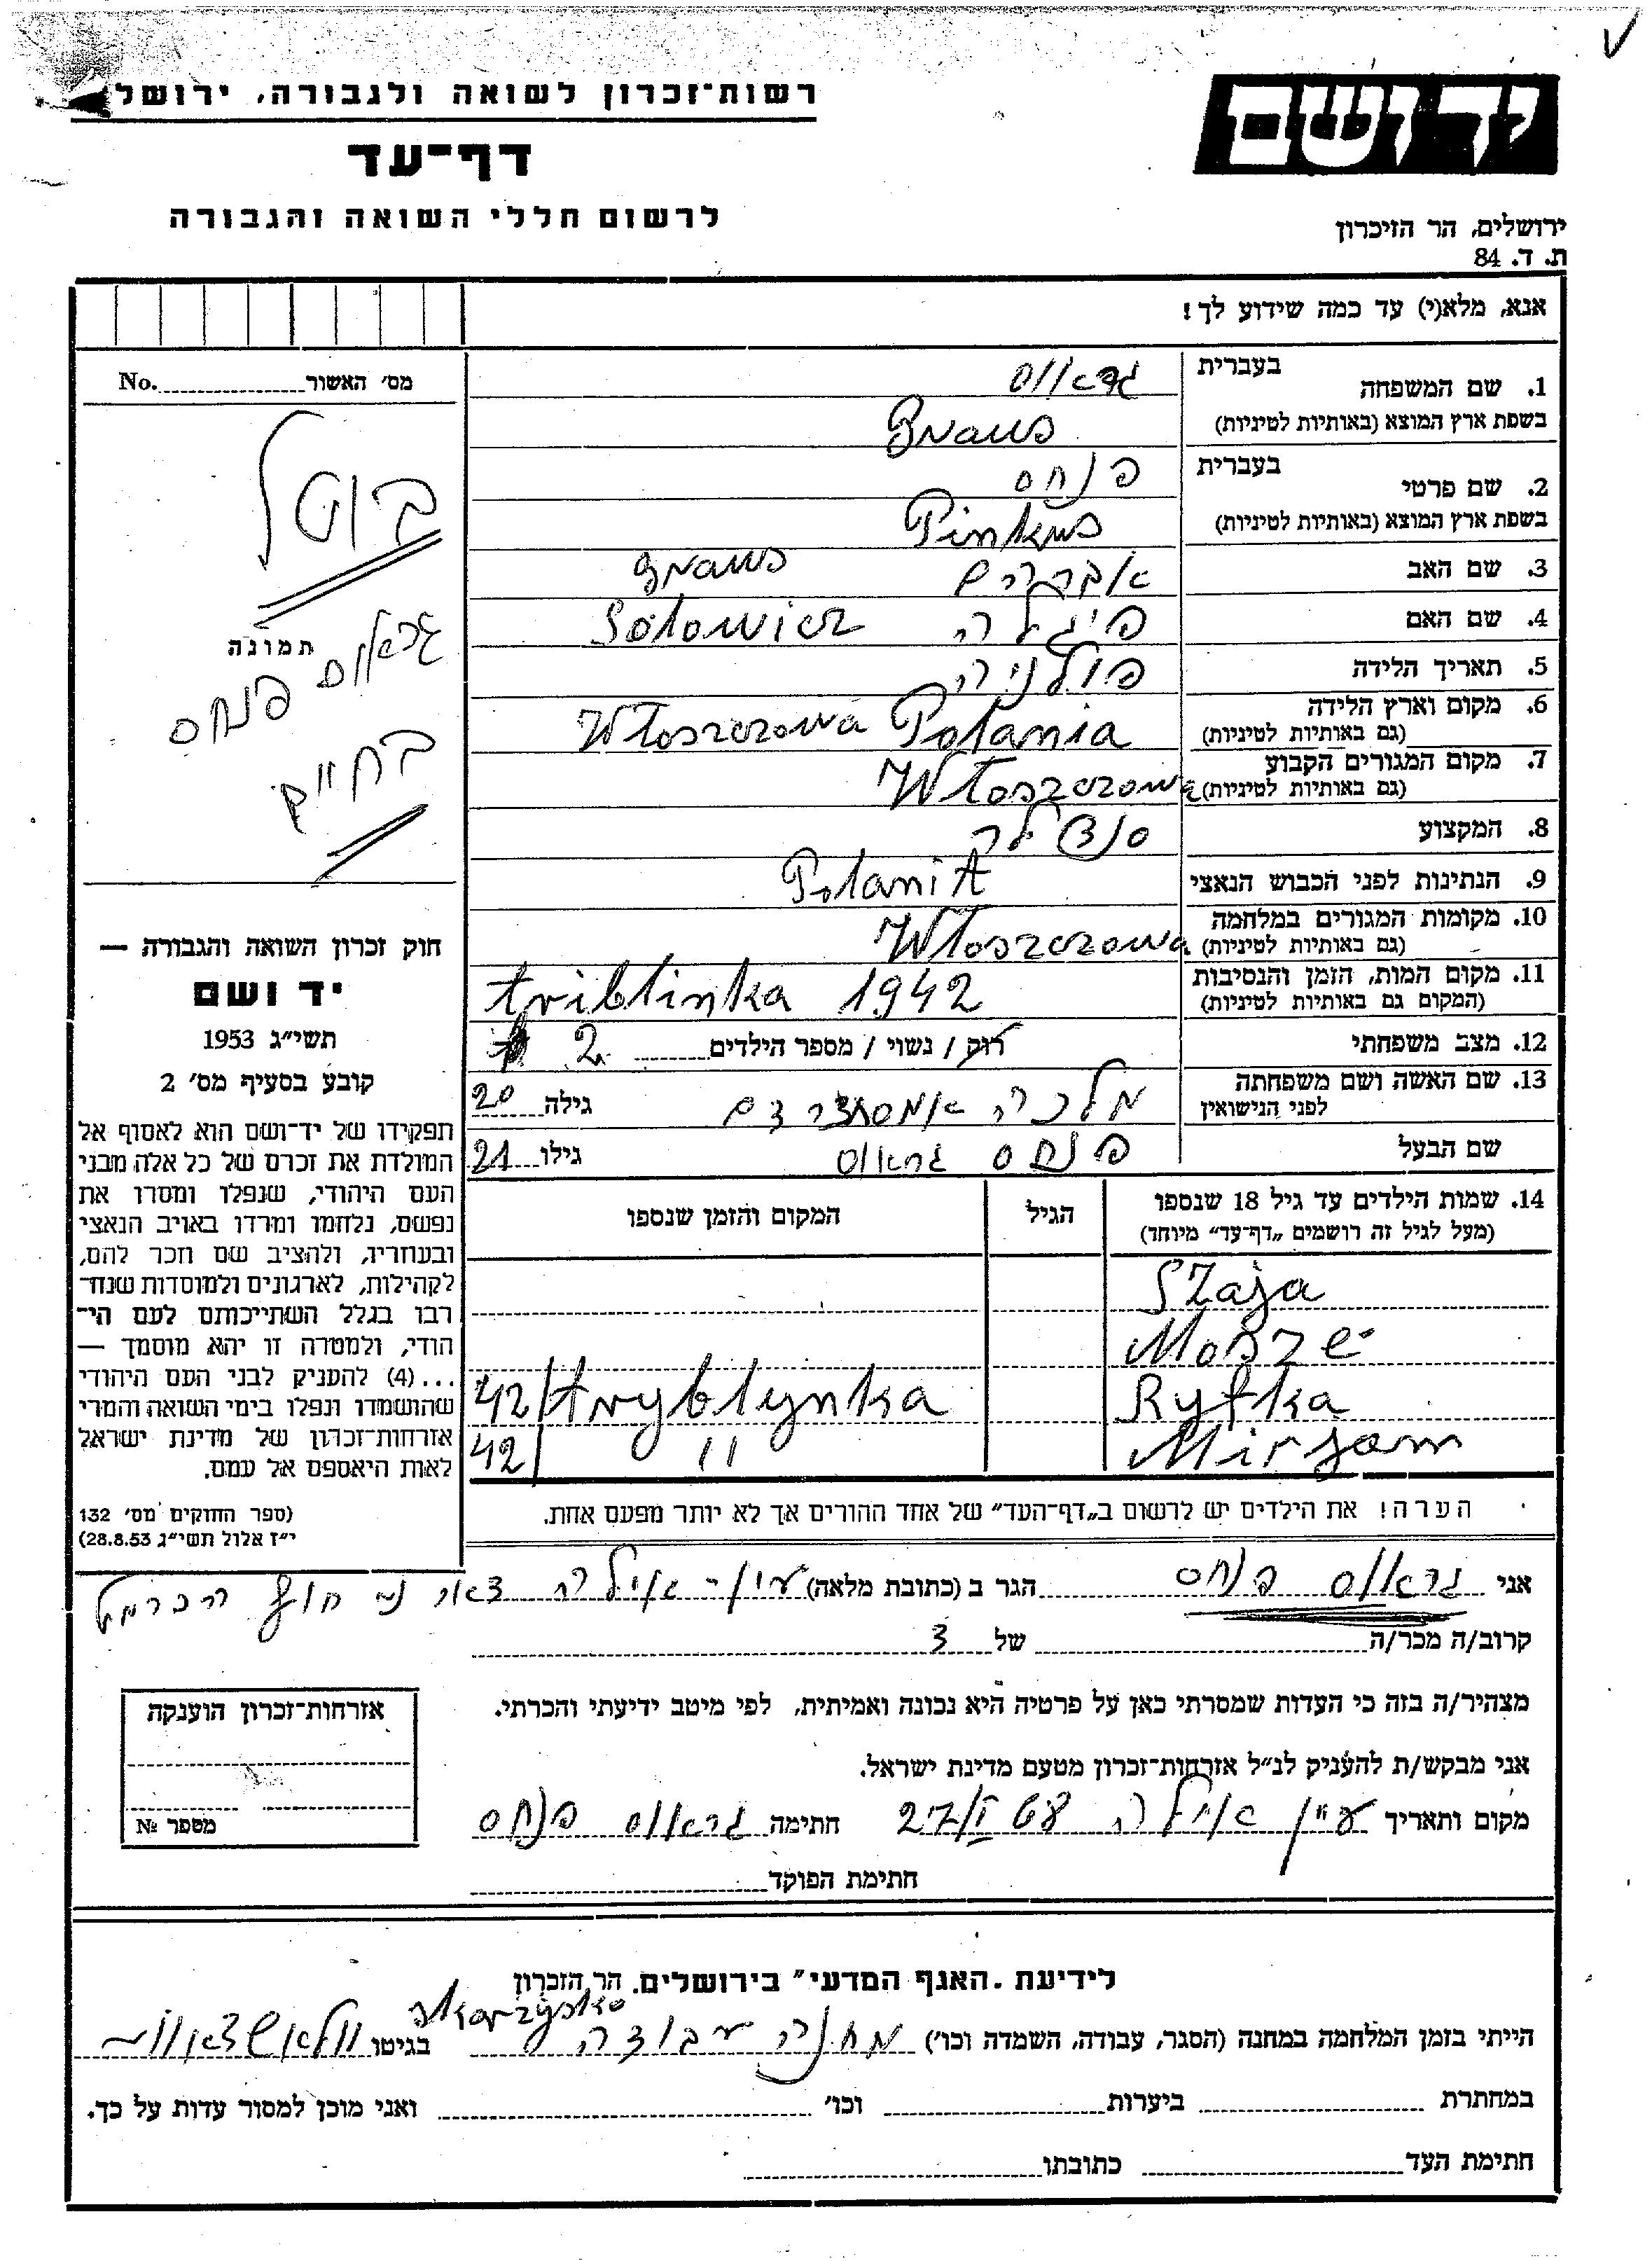 רשות־זכרון לשואה ולגבורה, ירושל
יד ושם
דף־עד
לרשום חללי השואה והגבורה
ירושלים, הר הזיכרון
ת. ד. 84
אנא, מלא(י) עד כמה שידוע לך!
מס׳ האשור No.
1. שם המשפחה
בעברית
גראוס
בשפת ארץ המוצא (באותיות לטיניות)
Graus
2. שם פרטי
בעברית
פנחס
בשפת ארץ המוצא (באותיות לטיניות)
Pinkus
3. שם האב
אברהם Graus
4. שם האם
פיגלה Solowicz
5. תאריך הלידה
פולניה
6. מקום וארץ הלידה
(גם באותיות לטיניות)
Włoszczowa Polania
7. מקום המגורים הקבוע
(גם באותיות לטיניות)
Włoszczowa
8. המקצוע
סנדלר
9. הנתינות לפני הכבוש הנאצי
Polanit
10. מקומות המגורים במלחמה
(גם באותיות לטיניות)
Włoszczowa
11. מקום המות, הזמן והנסיבות
(המקום גם באותיות לטיניות)
triblinka 1942
12. מצב משפחתי
רוק / נשוי / מספר הילדים 2
13. שם האשה ושם משפחתה
לפני הנישואין
מלכה אמסטרדם גילה 20
שם הבעל
פנחס גראוס גילו 21
14. שמות הילדים עד גיל 18 שנספו
(מעל לגיל זה רושמים „דף־עד״ מיוחד)
הגיל
המקום והזמן שנספו
Szaja
Mosze
Ryfka
tryblynka 42
Mirjam
" 42
הערה! את הילדים יש לרשום ב„דף־העד״ של אחד ההורים אך לא יותר מפעם אחת.
בוטל
תמונה
גראוס פנחס
בחיים
חוק זכרון השואה והגבורה —
יד ושם
תשי״ג 1953
קובע בסעיף מס׳ 2
תפקידו של יד־ושם הוא לאסוף אל
המולדת את זכרם של כל אלה מבני
העם היהודי, שנפלו ומסרו את
נפשם, נלחמו ומרדו באויב הנאצי
ובעוזריו, ולהציב שם וזכר להם,
לקהילות, לארגונים ולמוסדות שנח־
רבו בגלל השתייכותם לעם הי־
הודי, ולמטרה זו יהא מוסמך —
...(4) להעניק לבני העם היהודי
שהושמדו ונפלו בימי השואה והמרי
אזרחות־זכרון של מדינת ישראל
לאות היאספם אל עמם.
(ספר החוקים מס׳ 132
י״ז אלול תשי״ג 28.8.53)
אני גראוס פנחס הגר ב (כתובת מלאה) עין-אילה דאר נע חוף הכרמל
קרוב/ה מכר/ה של 3
מצהיר/ה בזה כי העדות שמסרתי כאן על פרטיה היא נכונה ואמיתית, לפי מיטב ידיעתי והכרתי.
אני מבקש/ת להעניק לנ״ל אזרחות־זכרון מטעם מדינת ישראל.
מקום ותאריך עין אילה 27/I חתימה גראוס פנחס
חתימת הפוקד
אזרחות־זכרון הוענקה
מספר №
לידיעת „האגף המדעי״ בירושלים. הר הזכרון
הייתי בזמן המלחמה במחנה (הסגר, עבודה, השמדה וכו׳) מחנה עבודה בגיטו
במחתרת ביערות וכו׳ ואני מוכן למסור עדות על כך.
חתימת העד כתובתו